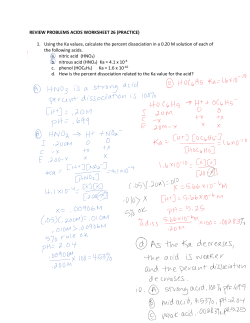 REVIEW PROBLEMS ACIDS WORKSHEET 26 (PRACTICE)
1. Using the Ka values, calculate the percent dissociation in a 0.20 M solution of each of
the following acids.
a. nitric acid (HNO₃)
b. nitrous acid (HNO₂) Ka = 4.1 x 10⁻⁴
c. phenol (HOC₆H₅) Ka = 1.6 x 10⁻¹⁰
d. How is the percent dissociation related to the Ka value for the acid?
Ⓐ HNO₃ is a strong acid
percent dissociation is 100%
[H⁺] = .20M
pH = .699
Ⓑ HNO₂ → H⁺ +
I .20M 0 0
C -x +x +x
E .20-x x x
Ka =
4.1x10⁻⁴ =
x = .00906M
(.05)(.20M) = .010M
.010M > .00906M
5% rule ok
pH = 2.04
.00906M
.20M
100 = 4.53%
Ⓒ HOC₆H₅
HOC₆H₅ → H⁺ + OC₆H₅⁻
I .20M 0 0
C -x +x +x
E .20-x x x
Ka = [H⁺][OC₆H₅⁻]
[HOC₆H₅]
1.6x10⁻¹⁰ = [x][x]
(.05)(.20M) = .01
x = 5.66x10⁻⁶M
[H⁺] = 5.66x10⁻⁶M
5% ok
pH = 5.25
% diss = 5.66x10⁻⁶M
.20M
100 = .00283%
ⓓ As the Ka decreases,
the acid is weaker
and the percent dissociation
decreases.
Ⓐ strong acid, 100%, pH = .699
Ⓑ mid acid, 4.53%, pH = 2.04
Ⓒ weak acid, .00283%, pH = 5.25